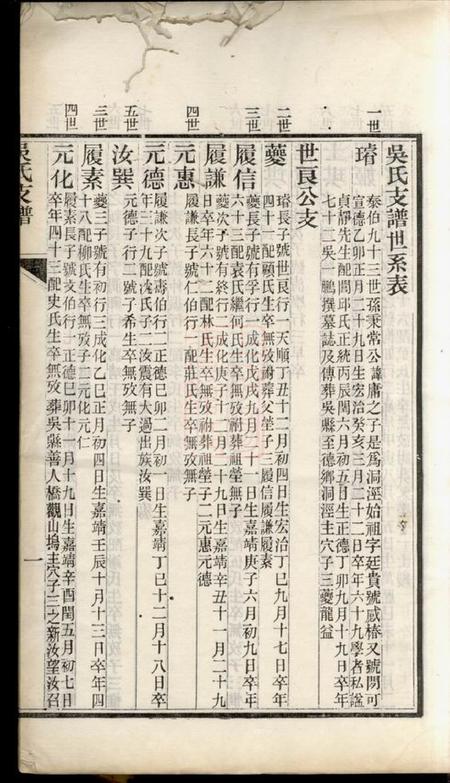 吳氏支譜世系表
一世
璿
泰伯九十三世孫秉常公諱庸之子是爲洞涇始祖字廷貴號戚椿又號閉可
宣德乙卯正月二十九日生宏治癸亥三月二十二日卒年六十九學者私諡
貞靜先生配閭邱氏正統丙辰閏六月初五日生正德丁卯九月十九日卒年
七十二吳一鵬撰墓誌及傳葬吳縣至德鄉洞涇主穴子三夔龍益
世良公支
二世
夔
璿長子號世良行一天順丁丑十二月初四日生宏治丁巳九月十七日卒年
四十一配顧氏生卒無攷祔葬父塋子三履信履謙履素
三世
履信
夔長子號有孚行一成化戊戌九月二十一日生嘉靖庚子六月初九日卒年
六十三配袁氏繼何氏生卒無攷祔葬祖塋無子
履謙
夔次子號有終行二成化庚子十二月二十九日生嘉靖辛丑十一月二十九
日卒年六十二配林氏生卒無攷祔葬祖塋子二元惠元德
四世
元惠
履謙長子號仁伯行一配莊氏生卒無攷無子
元德
履謙次子號壽伯行二正德己卯二月初一日生嘉靖丁巳十二月十八日卒
年三十九配淩氏子二汝震有大過出族汝巽
五世
汝巽
元德子行二號子希生卒無攷無子
三世
履素
夔三子號有初行三成化乙巳正月初四日生嘉靖壬辰十月十三日卒年四
十八配柳氏生卒無攷子二元化元仁
四世
元化
履素長子號文伯行一正德己卯十一月十九日生嘉靖辛酉閏五月初七日
卒年四十三配史氏生卒無攷葬吳縣善人橋觀山塢主穴子三之新汝望汝召
吳氏支譜
一